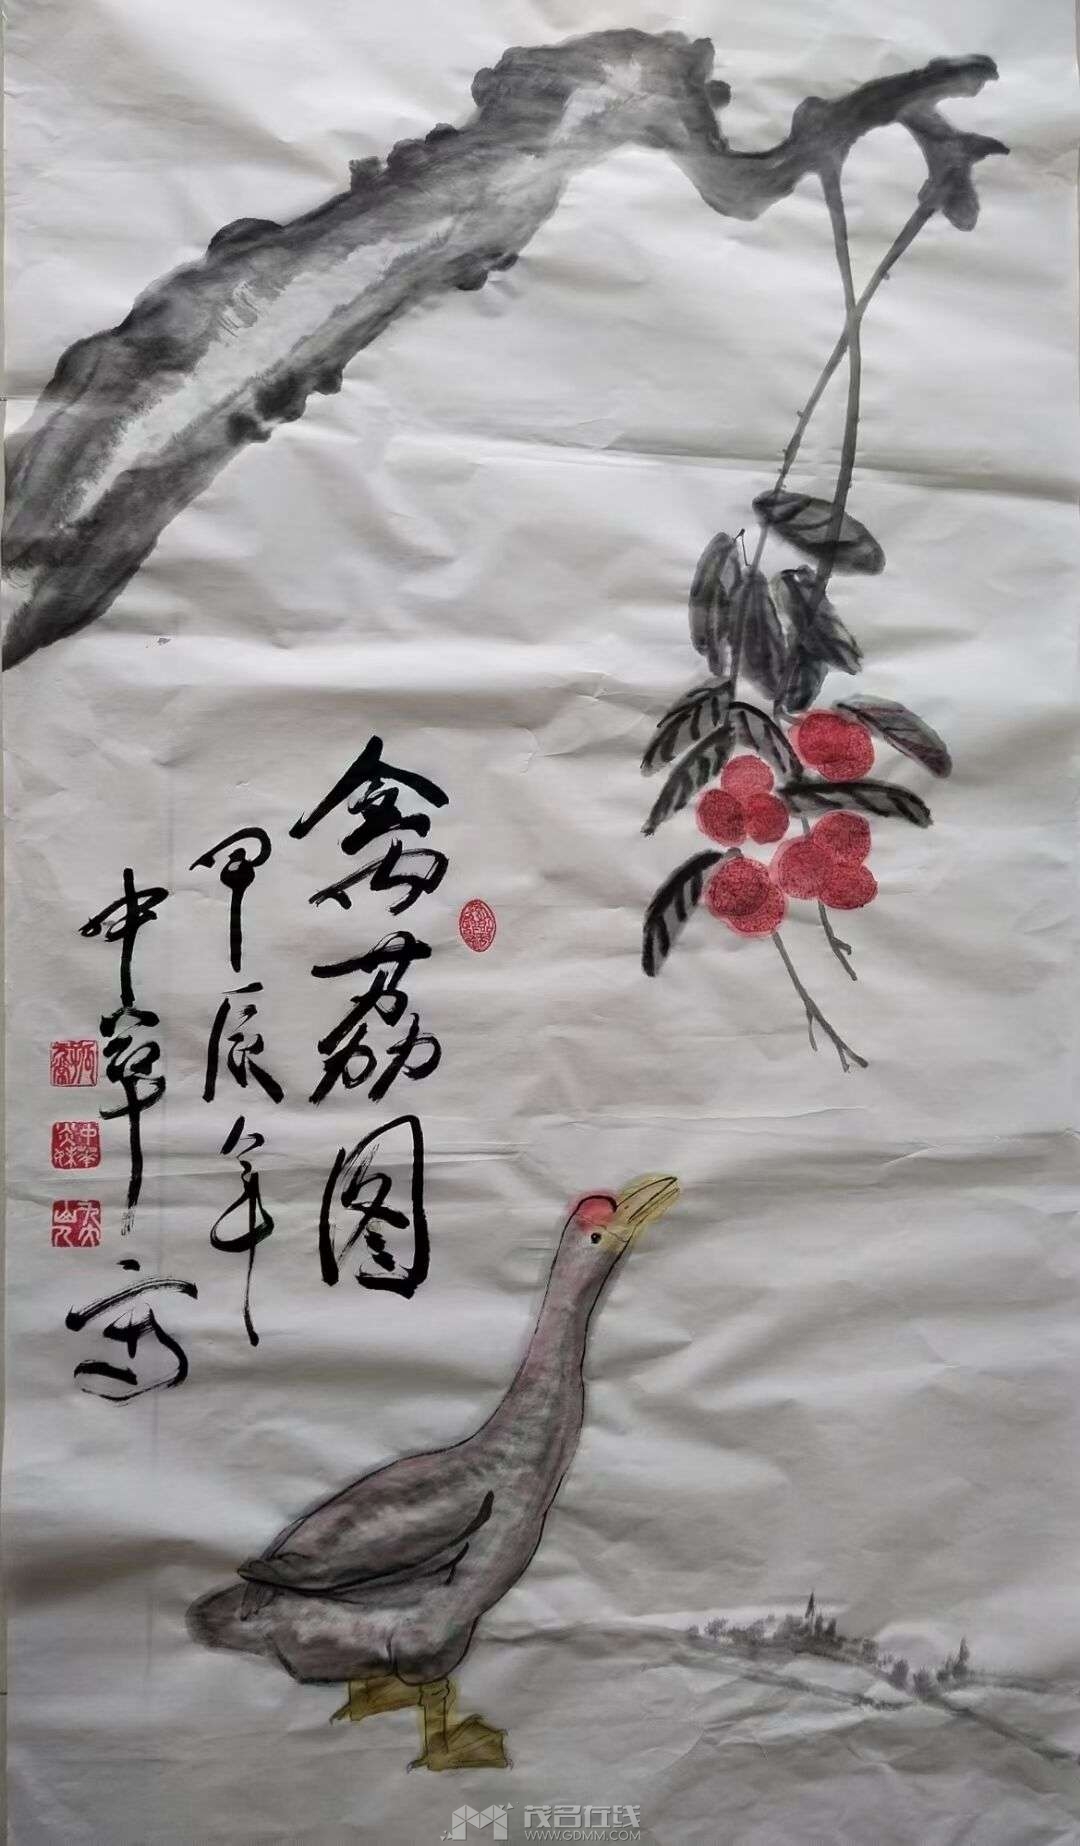 禽荔图
甲辰年
中草写
茂名在线
WWW.GDMM.COM